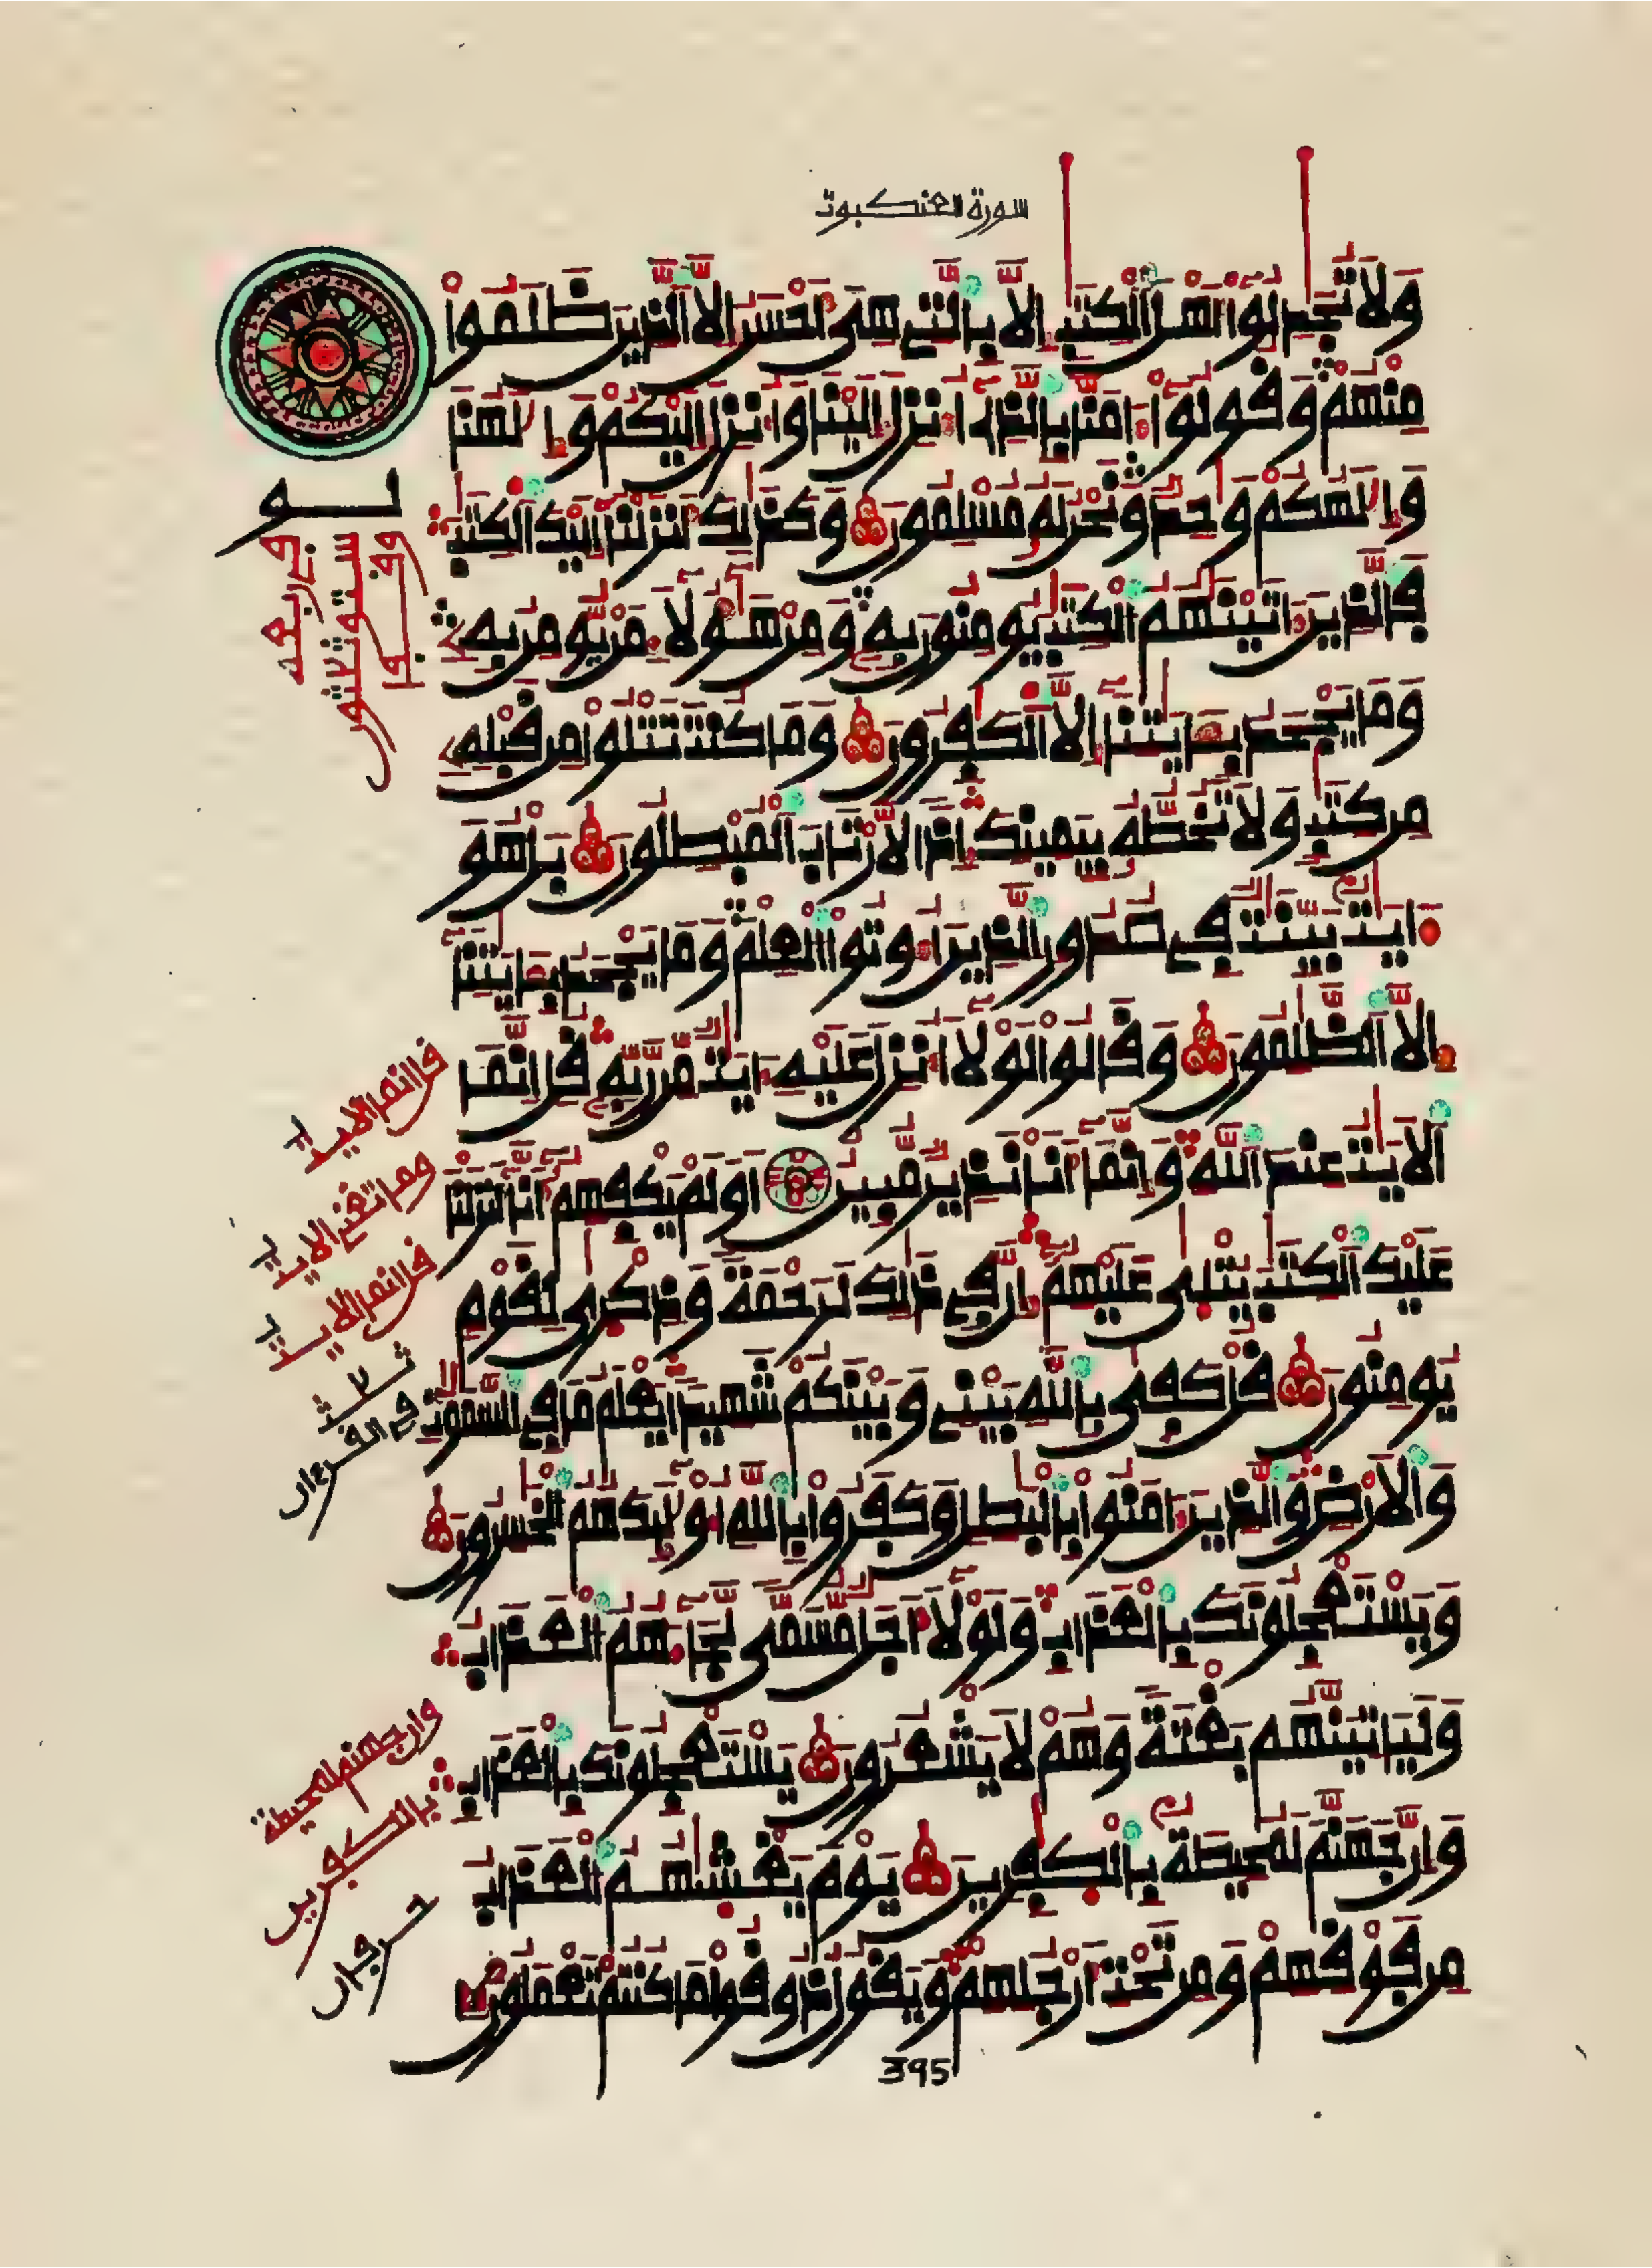 سورة العنكبوت
وَلَا تُجَٰدِلُوا أَهْلَ الْكِتَٰبِ إِلَّا بِالَّتِي هِيَ أَحْسَنُ إِلَّا الَّذِينَ ظَلَمُواْ
مِنْهُمْ وَقُولُواْ ءَامَنَّا بِالَّذِي أُنزِلَ إِلَيْنَا وَأُنزِلَ إِلَيْكُمْ وَإِلَٰهُنَا
وَإِلَٰهُكُمْ وَٰحِدٌ وَنَحْنُ لَهُ مُسْلِمُونَ وَكَذَٰلِكَ أَنزَلْنَا إِلَيْكَ الْكِتَٰبَ
فَالَّذِينَ ءَاتَيْنَٰهُمُ الْكِتَٰبَ يُومِنُونَ بِهِ وَمِنْ هَٰؤُلَاءِ مَنْ يُّومِنُ بِهِ
وَمَا يَجْحَدُ بِـَٔايَٰتِنَا إِلَّا الْكَٰفِرُونَ وَمَا كُنتَ تَتْلُواْ مِن قَبْلِهِ
مِن كِتَٰبٍ وَلَا تَخُطُّهُ بِيَمِينِكَ إِذًا لَّارْتَابَ الْمُبْطِلُونَ بَلْ هُوَ
ءَايَٰتٌ بَيِّنَٰتٌ فِي صُدُورِ الَّذِينَ أُوتُواْ الْعِلْمَ وَمَا يَجْحَدُ بِـَٔايَٰتِنَا
إِلَّا الظَّٰلِمُونَ وَقَالُواْ لَوْلَا أُنزِلَ عَلَيْهِ ءَايَٰتٌ مِّن رَّبِّهِ قُلْ إِنَّمَا
الْأَيَٰتُ عِندَ اللَّهِ وَإِنَّمَا أَنَا نَذِيرٌ مُّبِينٌ أَوَلَمْ يَكْفِهِمْ أَنَّا أَنزَلْنَا
عَلَيْكَ الْكِتَٰبَ يُتْلَىٰ عَلَيْهِمْ إِنَّ فِي ذَٰلِكَ لَرَحْمَةً وَذِكْرَىٰ لِقَوْمٍ
يُومِنُونَ قُلْ كَفَىٰ بِاللَّهِ بَيْنِي وَبَيْنَكُمْ شَهِيدًا يَعْلَمُ مَا فِي السَّمَٰوَٰتِ
وَالْأَرْضِ وَالَّذِينَ ءَامَنُواْ بِالْبَٰطِلِ وَكَفَرُواْ بِاللَّهِ أُوْلَٰئِكَ هُمُ الْخَٰسِرُونَ
وَيَسْتَعْجِلُونَكَ بِالْعَذَابِ وَلَوْلَا أَجَلٌ مُّسَمًّى لَّجَاءَهُمُ الْعَذَابُ
وَلَيَاتِيَنَّهُم بَغْتَةً وَهُمْ لَا يَشْعُرُونَ يَسْتَعْجِلُونَكَ بِالْعَذَابِ
وَإِنَّ جَهَنَّمَ لَمُحِيطَةٌ بِالْكَٰفِرِينَ يَوْمَ يَغْشَىٰهُمُ الْعَذَابُ
مِن فَوْقِهِمْ وَمِن تَحْتِ أَرْجُلِهِمْ وَيَقُولُ ذُوقُواْ مَا كُنتُمْ تَعْمَلُونَ
قل انما الايت
وما تغني الايت
قل انما الايت
ثلاث
في القرءان
وان جهنم لمحيطة
بالكفرين
حرفان
395